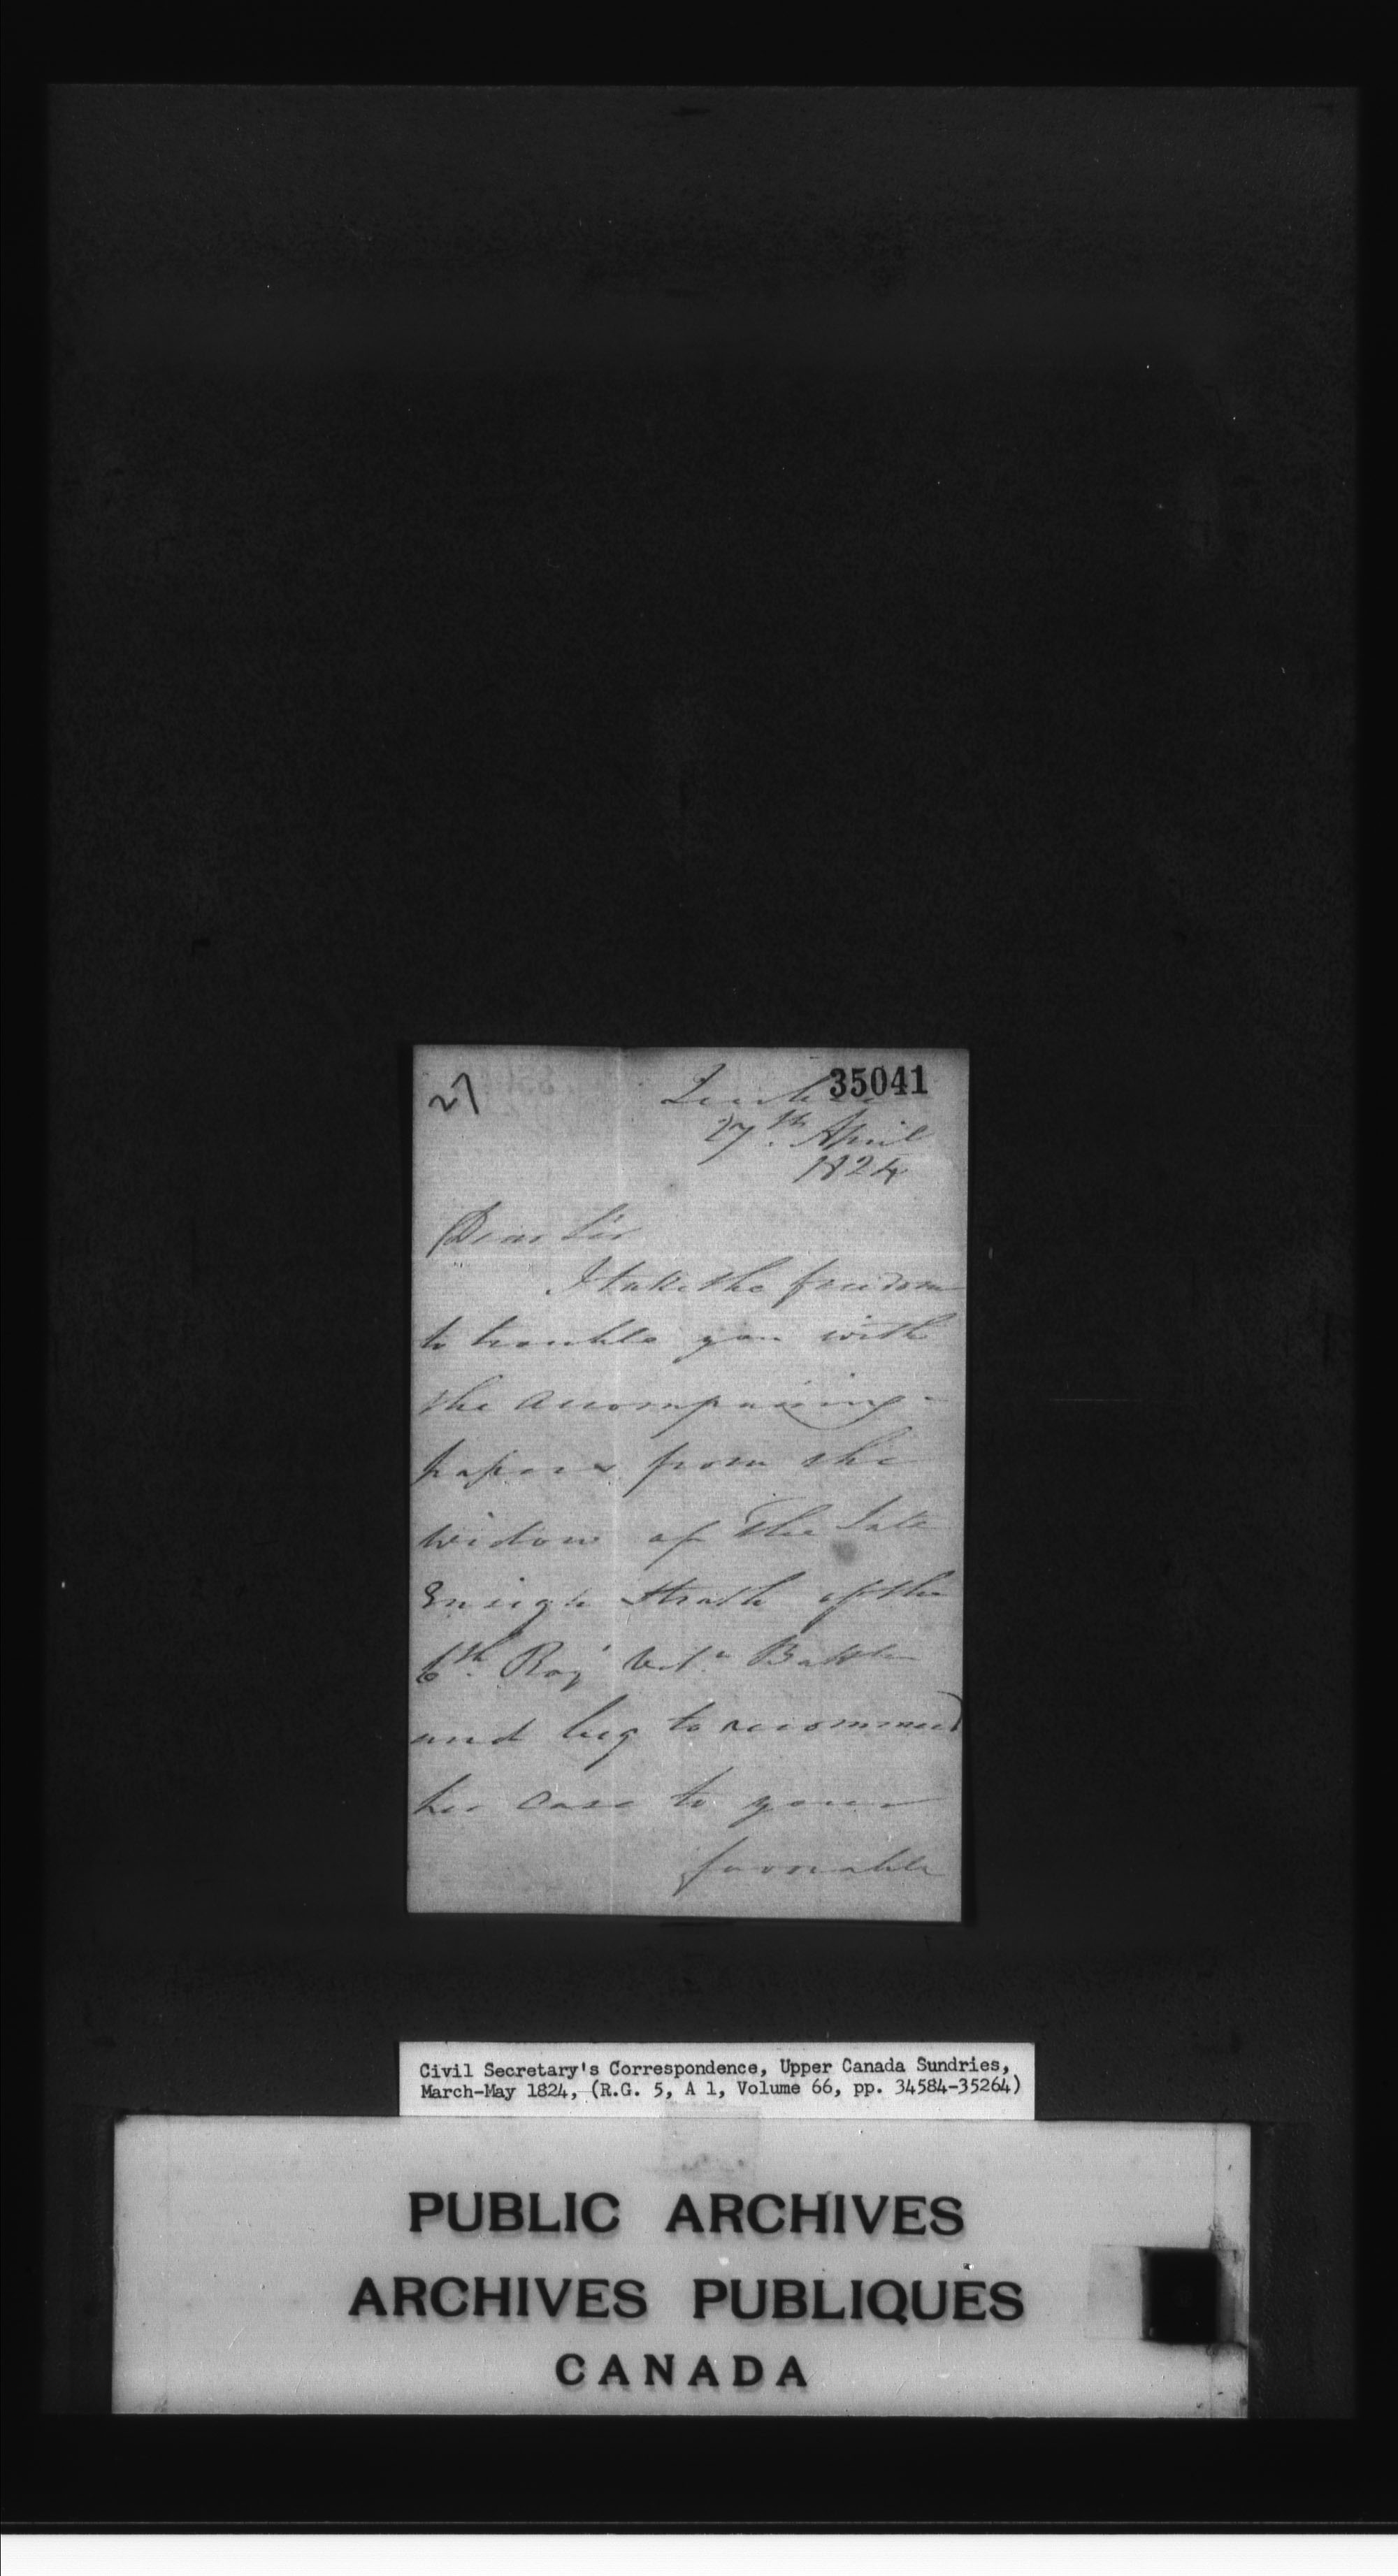 27
35041
27th April
1824
Dear Sir
I take the freedom
to trouble you with
the accompaning
papers from the
widow of the late
Ensign Strath of the
6th Roy Vetn Battln
and beg to recommend
her case to your
favorable
Civil Secretary's Correspondence, Upper Canada Sundries,
March-May 1824, (R.G. 5, A 1, Volume 66, pp. 34584-35264)
PUBLIC ARCHIVES
ARCHIVES PUBLIQUES
CANADA